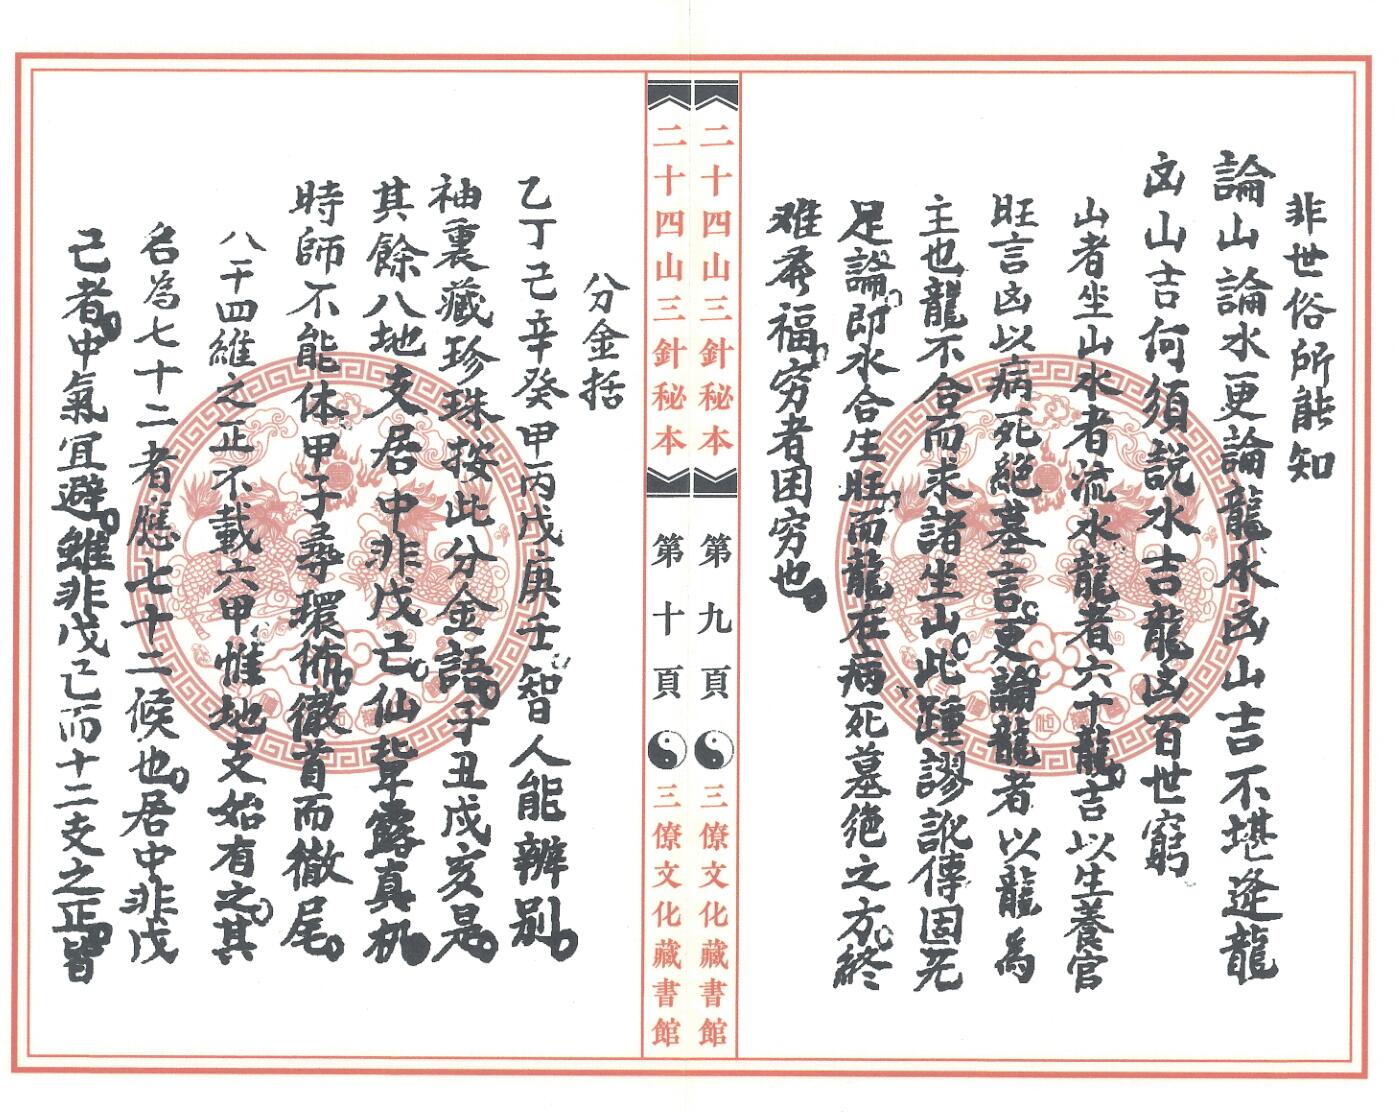 非世俗所能知
論山論水更論龍水凶山吉不堪逢龍
凶山吉何須説水吉龍凶百世窮
山者坐山水者流水龍者六十龍吉以生養官
旺言凶以病死絕墓言更論龍者以龍為
主也龍不合而求諸坐山此踵謬訛傳固无
足論即水合生旺而龍在病死墓绝之方終
难尋福穷者困穷也
二十四山三針秘本
第九頁
三僚文化藏書館
二十四山三針秘本
第十頁
三僚文化藏書館
分金括
乙丁己辛癸甲丙戊庚壬智人能辨别
袖裏藏珍珠按此分金語子丑戌亥是
其餘八地支居中非戊己仙輩露真机
時師不能休甲子尋環佈徹首而徹尾
八干四維之正不載六甲惟地支始有之其
名為七十二者應七十二候也居中非戊
己者中氣宜避雖非戊己而十二支之正皆